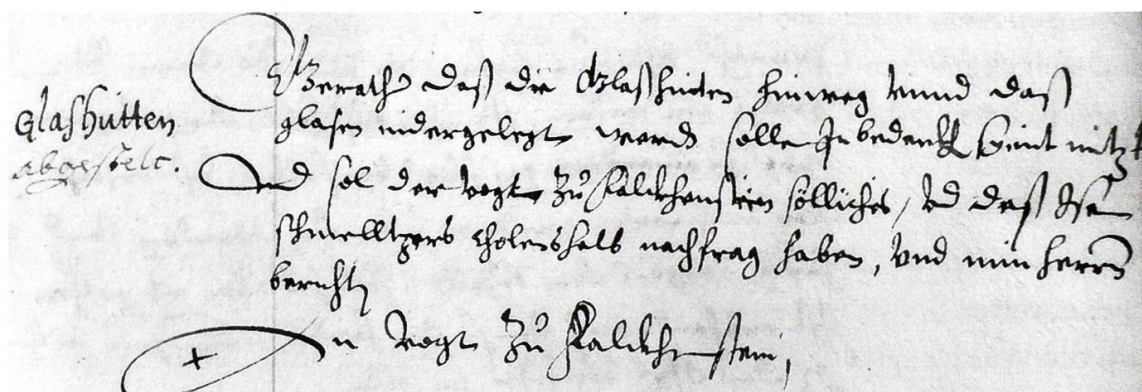 Glashütten
abgestelt.
Ist gerathen daß die Glaßhütten hinweg vnnd daß
glasen nidergelegt werde solle In bedenckh
Vnd sol der Vogt zu Falckhenstein solliches, vnd daß
schmelltzers cholershalb nachfrag haben, vnd min herrn
berichten
An Vogt zu Falckhenstein,